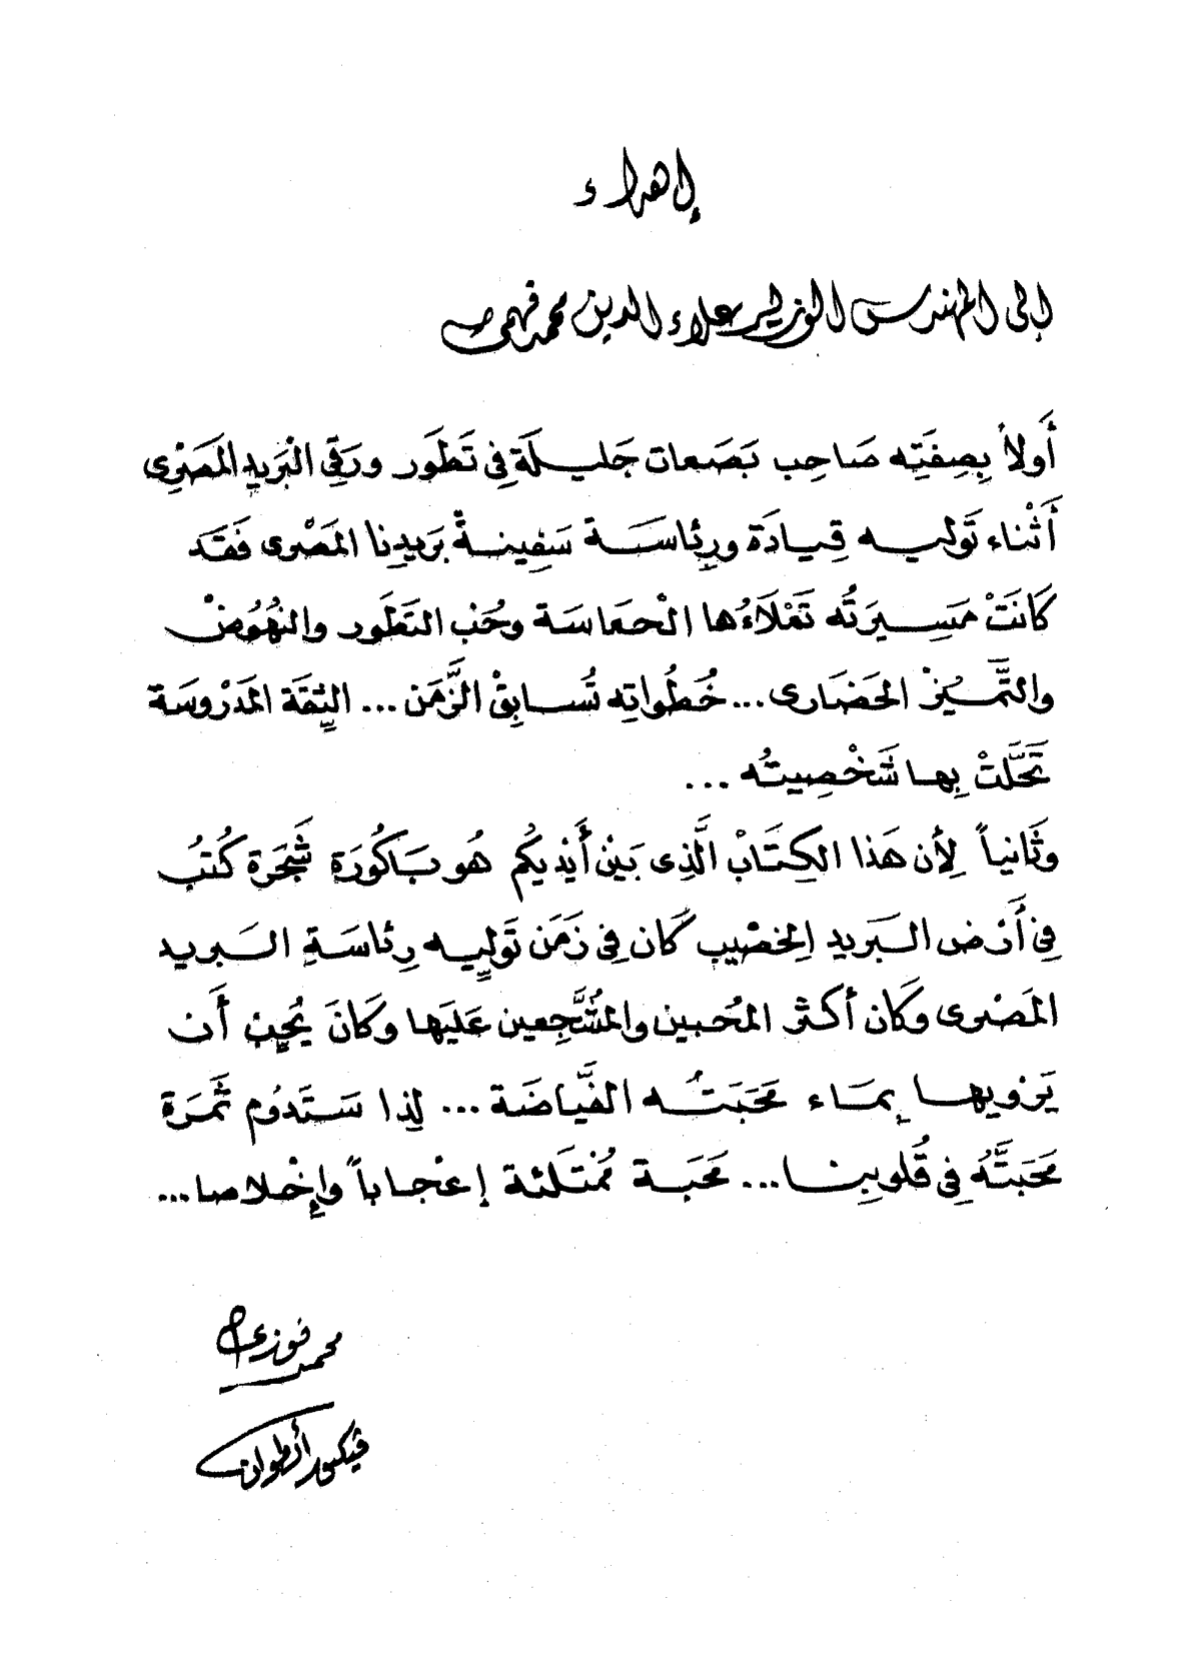 إهداء
إلى المهندس الوزير علاء الدين محمد فهمى
أَولاً بِصِفَتِه صَاحِب بَصَمات جَليلَة فِى تَطَور ورَقِّى الْبَرِيدِ المَصْرِى
أَثْناء تَوليه قِيادَة ورِئاسَة سَفِينةً بَريدِنا المَصْرى فَقَد
كَانَتْ مَسِيرَتُه تَمْلَاءُها الْحَماسَة وحُب التَطَور والنهُوضْ
والتَّميُزْ الحَضَارى... خُطُواتِه تُسابِقْ الزَّمَن... الثِقَة المَدْروسَة
تَحَلَّتْ بِها شَخْصِيتُه ...
وثَانياً لِأن هَذا الكِتَابْ الَّذِى بَينْ أَيْديكُم هُو بَاكُورَةِ شَجَرَة كُتبُ
فِى أَرْض البَريد الخصْيب كَان فِى زَمَن تَوليِه رِئاسَةِ البَريد
المَصْرى وكَان أكثر المُحبين والمُشَّجِعين عَليَها وكَانَ يُحِب أَن
يَرْويها بِمَاء مَحَبَتُه الفَّياضَة ... لِذا سَتَدوُم ثَمرَة
مَحَبَتَّهُ فِى قُلوبِنا... مَحَبة مُمْتَلئة إعْجاباً وإخْلاصا...
محمد فوزى
ڤيكتور أنطوان